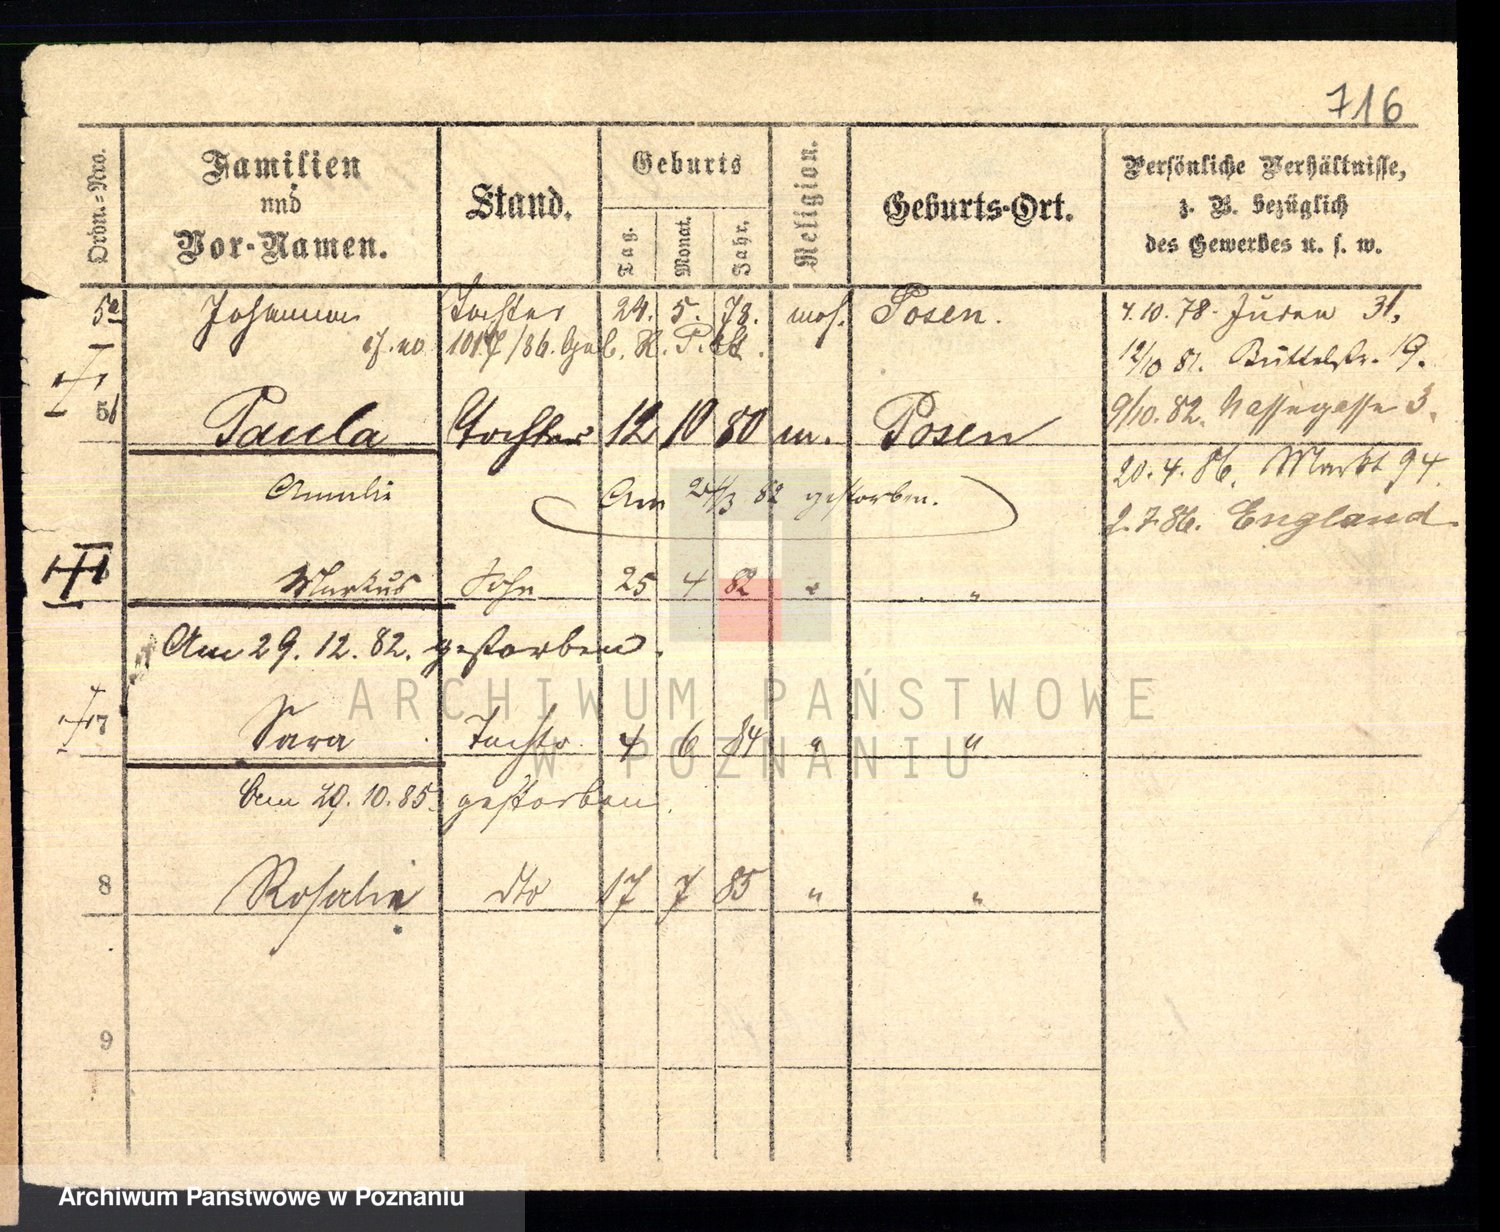 716
Ordn.-Nro.
Familien
und
Vor-Namen.
Stand.
Geburts
Tag.
Monat.
Jahr.
Religion.
Geburts-Ort.
Persönliche Verhältnisse,
z. B. bezüglich
des Gewerbes u. s. w.
5a Johanna Tochter 24. 5. 78. mos. Posen. 4.10.78. Juden 31,
1017/86. Geb. R. P.
12/10 81. Büttelstr. 19.
5b Paula Tochter 12 10 80 m. Posen 9/10.82. Nassegasse 3.
Amalie Am 24/3 82 gestorben. 20.4.86. Markt 94.
2.7.86. England
Markus Sohn 25 4 82 " "
Am 29. 12. 82. gestorben.
7 Sara Tochtr 4 6 84 " "
Am 29. 10. 85. gestorben.
8 Rosalie dto 17 7 85 " "
9
ARCHIWUM PAŃSTWOWE
W POZNANIU
Archiwum Państwowe w Poznaniu